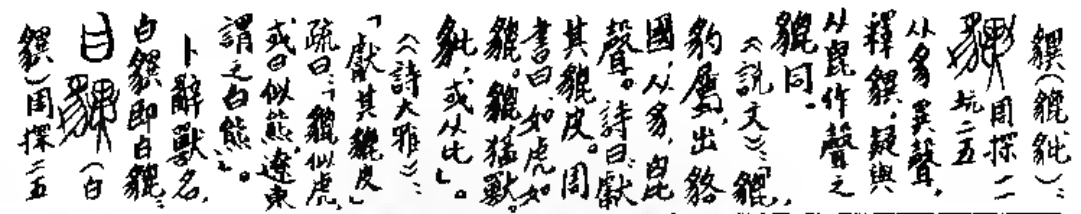 (貔豼)：
周探一一
坑二五
从豸異聲，
釋，疑與
从毘作聲之
貔同。
《說文》：「貔，
豹屬，出貉
國，从豸，毘
聲。詩曰：獻
其貔皮。周
書曰：如虎如
貔。貔，猛獸。
豼，或从比」。
《詩大雅》：
「獻其貔皮」
疏曰：「貔似虎，
或曰似熊，遼東
謂之白熊」。
卜辭獸名，
白即白貔：
白(白
)周探二五